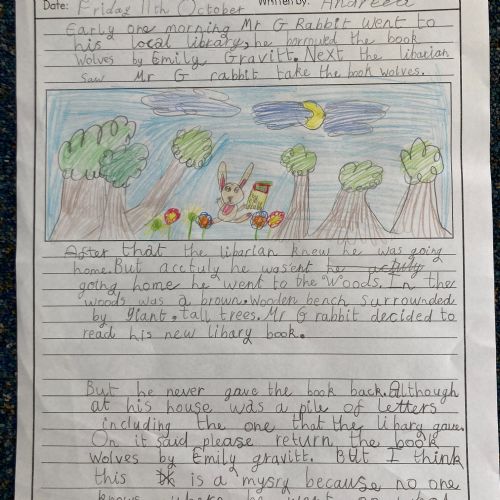 Date: Friday 11th October Written by: Andreea
Early one morning Mr G Rabbit went to
his local library, he borrowed the book
Wolves by Emily Gravitt. Next the libarian
saw Mr G rabbit take the book wolves.
After that the libarian knew he was going
home. But acctuly he wasent he actuly
going home he went to the Woods. In the
woods was a brown. wooden bench surrounded
by giant. tall trees. Mr G rabbit decided to
read his new libary book.
But he never gave the book back. Although
at his house was a pile of letters
including the one that the libary gave.
On it said please return the book
Wolves by Emily gravitt. But I think
this is a mysry because no one
knows where he went or what